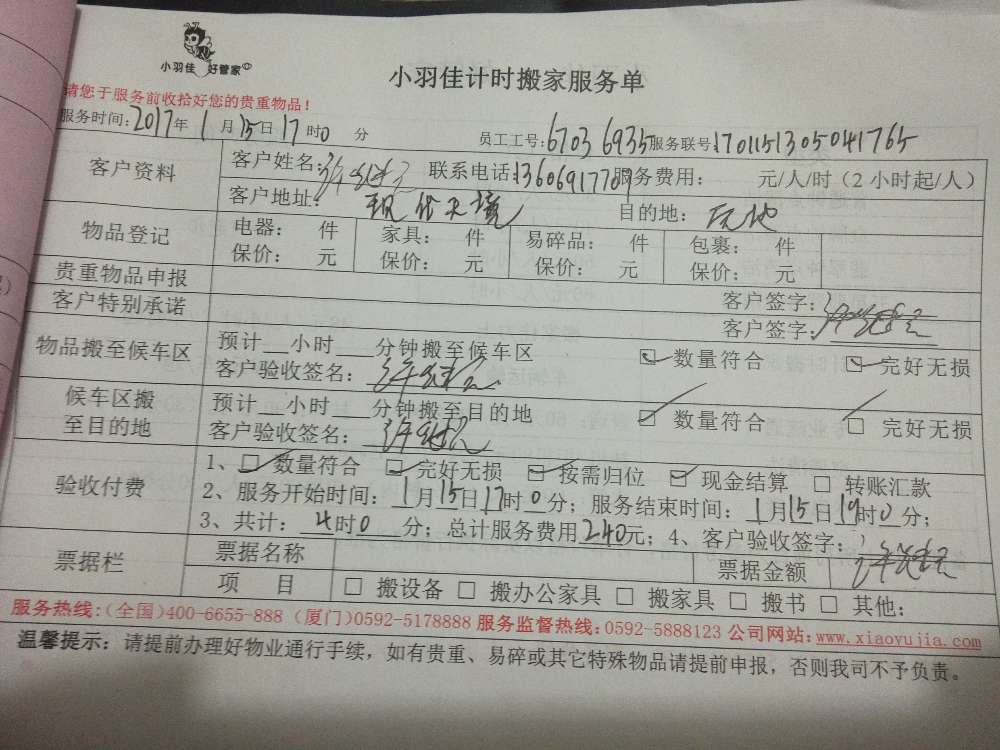 小羽佳 好管家
小羽佳计时搬家服务单
请您于服务前收拾好您的贵重物品！
服务时间：2017年1月15日17时0分 员工工号：6703 6935 服务联号：1701151305041765
客户资料 客户姓名：许 联系电话：13606917701 服务费用： 元/人/时（2小时起/人）
客户地址：现代天境 目的地： 当地
物品登记 电器： 件 家具： 件 易碎品： 件 包裹： 件
保价： 元 保价： 元 保价： 元 保价： 元
贵重物品申报 客户签字：
客户特别承诺 客户签字：
物品搬至候车区 预计 小时 分钟搬至候车区 数量符合 完好无损
客户验收签名：
候车区搬至目的地 预计 小时 分钟搬至目的地 数量符合 完好无损
客户验收签名：
验收付费 1、数量符合 完好无损 按需归位 现金结算 转账汇款
2、服务开始时间：1月15日17时0分；服务结束时间：1月15日19时0分；
3、共计：4时0分；总计服务费用240元；4、客户验收签字：
票据栏 票据名称 票据金额
项 目 搬设备 搬办公家具 搬家具 搬书 其他：
服务热线：（全国）400-6655-888（厦门）0592-5178888 服务监督热线：0592-5888123 公司网站：www.xiaoyujia.com
温馨提示：请提前办理好物业通行手续，如有贵重、易碎或其它特殊物品请提前申报，否则我司不予负责。